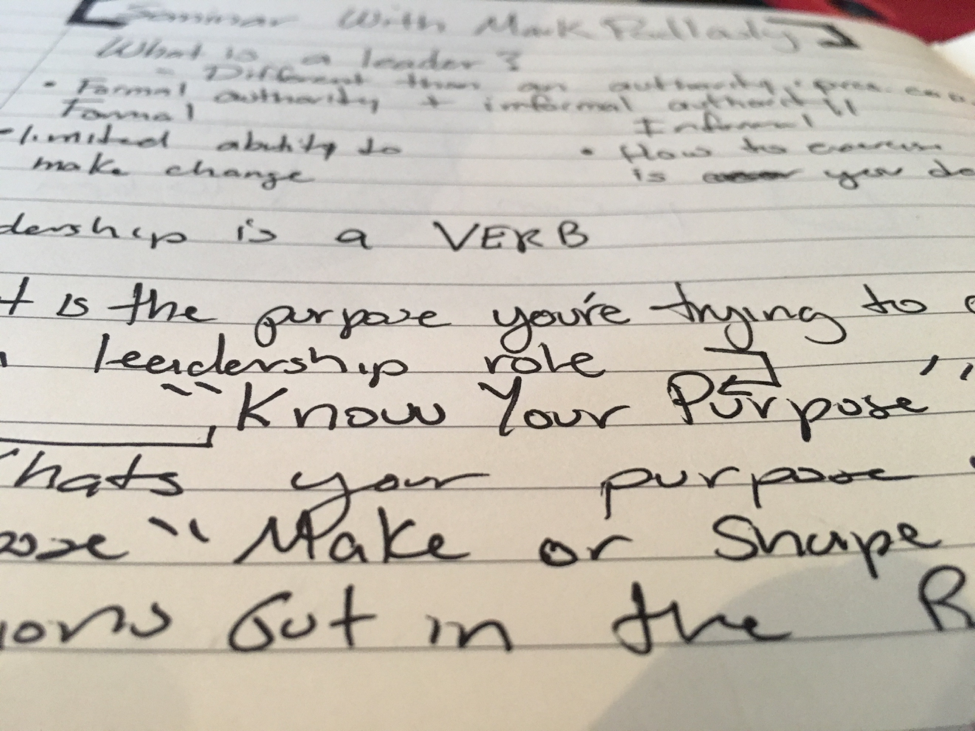 Seminar With Mark
What is a leader?
- Different than an authority
• Formal authority + informal authority
Formal
Informal
- limited ability to
make change
• How to
is you do
dership is a VERB
t is the purpose you're trying to
leadership role
"Know Your Purpose"
hats your purpose
pose "Make or Shape
ions Out in the R